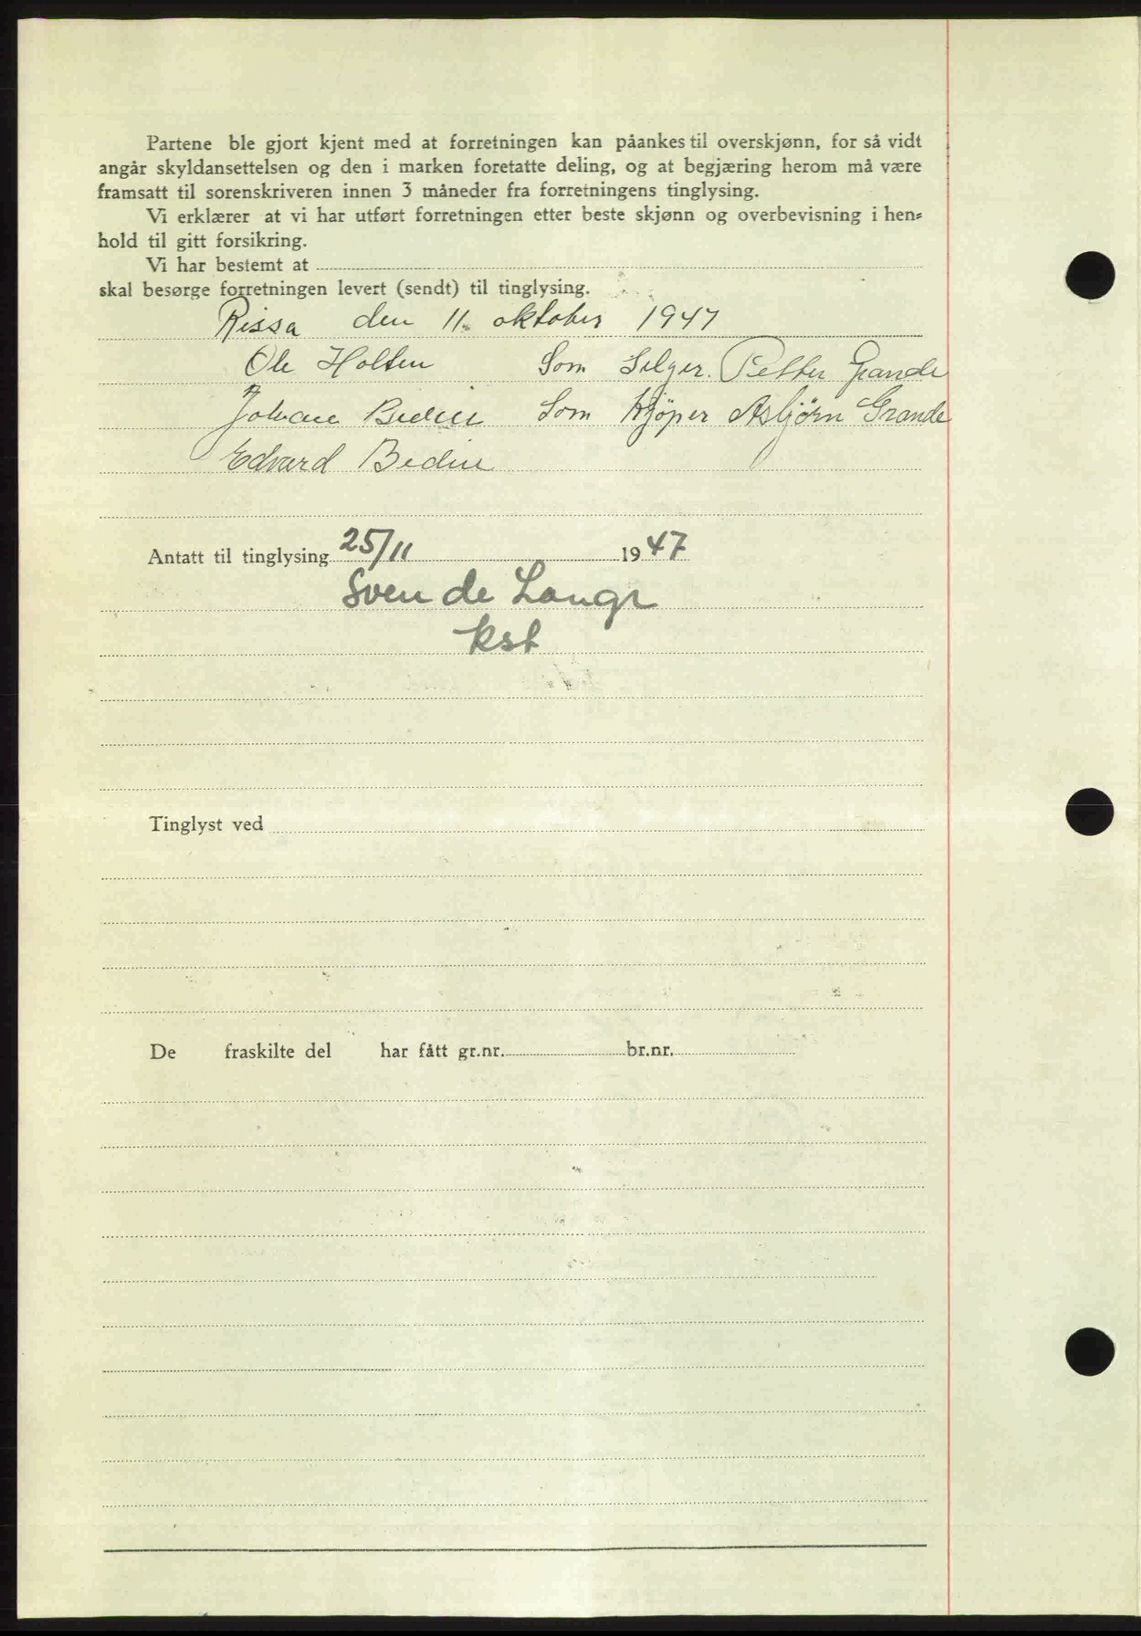 Partene ble gjort kjent med at forretningen kan påankes til overskjønn, for så vidt
angår skyldansettelsen og den i marken foretatte deling, og at begjæring herom må være
framsatt til sorenskriveren innen 3 måneder fra forretningens tinglysing.
Vi erklærer at vi har utført forretningen etter beste skjønn og overbevisning i hen-
hold til gitt forsikring.
Vi har bestemt at
skal besørge forretningen levert (sendt) til tinglysing.
Rissa den 11. oktober 1947
Ole Holten Som Selger. Petter Grande
Johan Som Kjøper Asbjørn Grande
Edvard
Antatt til tinglysing 25/11 1947
Sven de Lange
kst
Tinglyst ved
De fraskilte del har fått gr.nr. br.nr.